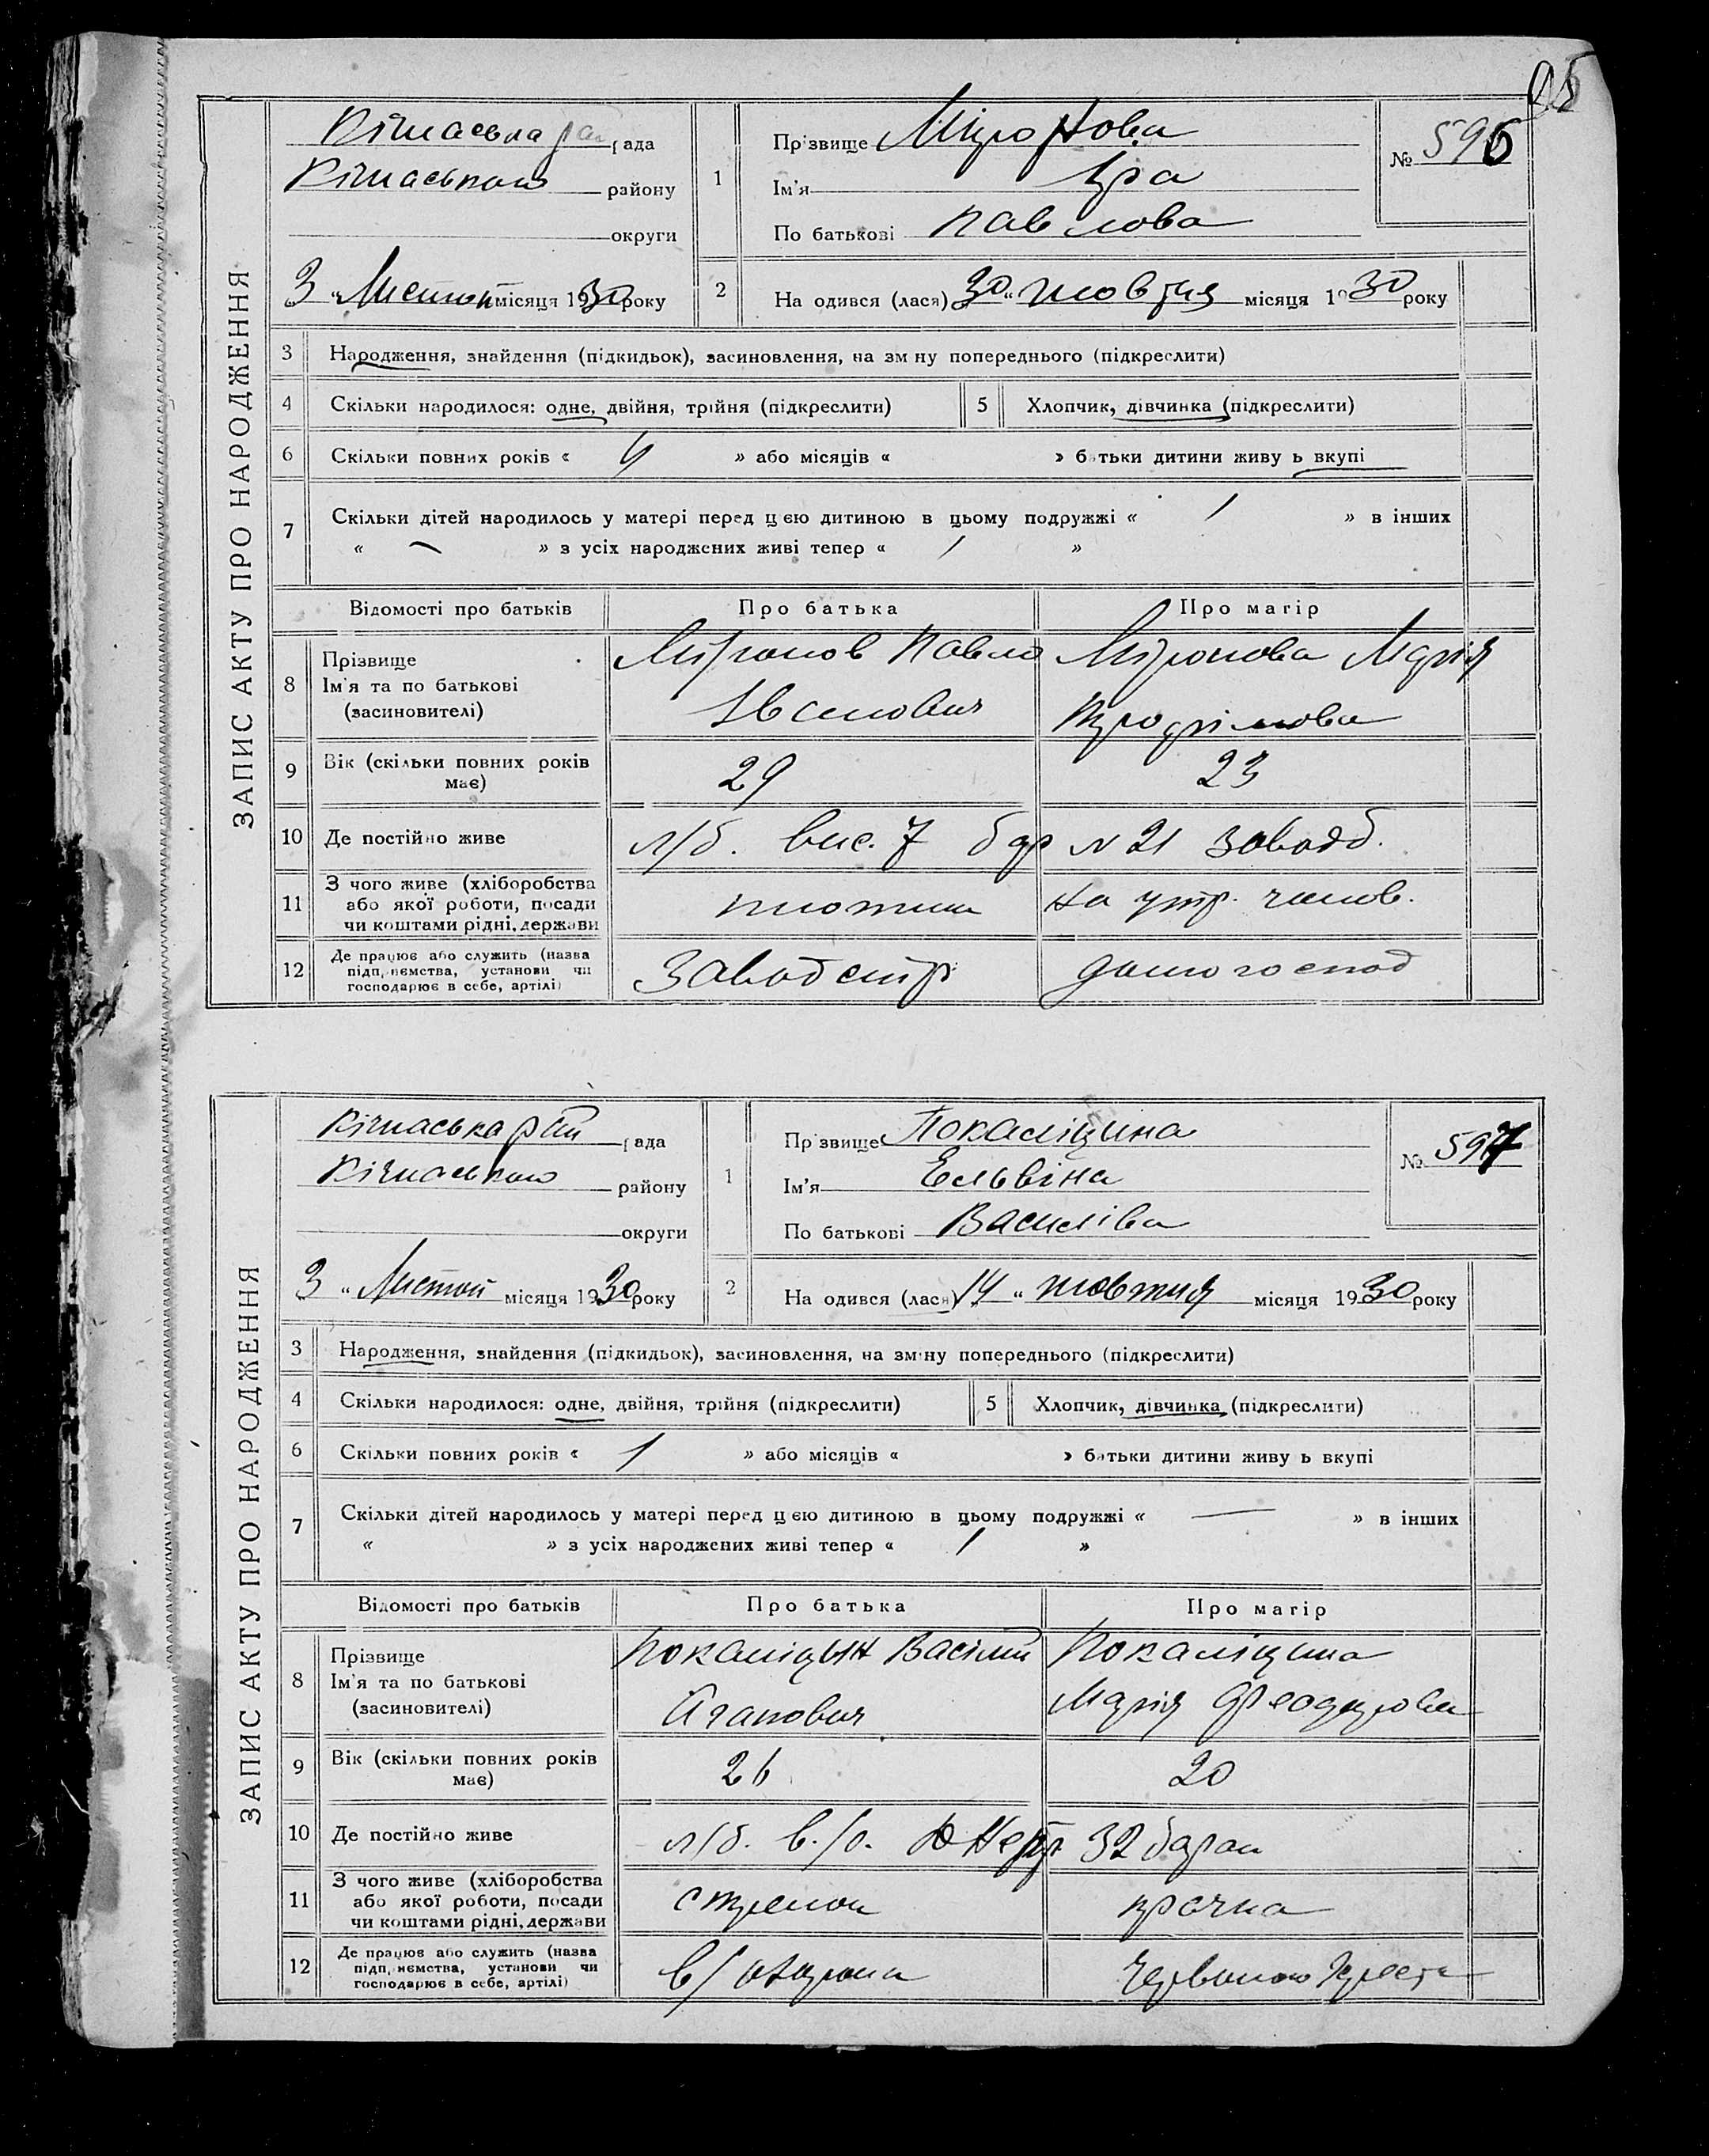 ЗАПИС АКТУ ПРО НАРОДЖЕННЯ
Кічкаська рада
Кічкаського району
округи
3 „Листоп місяця 1930 року
1 Прізвище Міронова
Ім'я Іра
По батькові Павлова
№ 596
2 На одився (лася) 30 „ жовтня місяця 1930 року
3 Народження, знайдення (підкидьок), засиновлення, на зм ну попереднього (підкреслити)
4 Скільки народилося: одне, двійня, трійня (підкреслити) 5 Хлопчик, дівчинка (підкреслити)
6 Скільки повних років « 4 » або місяців « » батьки дитини живу ь вкупі
7 Скільки дітей народилось у матері перед цєю дитиною в цьому подружжі « 1 » в інших
« – » з усіх народжених живі тепер « 1 »
Відомості про батьків Про батька Про матір
8 Прізвище Ім'я та по батькові (засиновителі) Міронов Павло Іванович Міронова Марія
9 Вік (скільки повних років має) 29 23
10 Де постійно живе л/б. вис. 7 бар N 21 заводб.
11 З чого живе (хліборобства або якої роботи, посади чи коштами рідні, держави на утр. чолов.
12 Де працює або служить (назва підп, иємства, установи чи господарює в себе, артілі) Заводстр. домогоспод
ЗАПИС АКТУ ПРО НАРОДЖЕННЯ
Кічкаська рай рада
Кічкаського району
округи
3 „ Листоп місяця 1930 року
1 Прізвище Покаліцина
Ім'я Ельвіна
По батькові Василіва
№ 597
2 На одився (лася) 14 „ жовтня місяця 1930 року
3 Народження, знайдення (підкидьок), засиновлення, на зміну попереднього (підкреслити)
4 Скільки народилося: одне, двійня, трійня (підкреслити) 5 Хлопчик, дівчинка (підкреслити)
6 Скільки повних років « 1 » або місяців « » батьки дитини живу ь вкупі
7 Скільки дітей народилось у матері перед цєю дитиною в цьому подружжі « — » в інших
« » з усіх народжених живі тепер « 1 »
Відомості про батьків Про батька Про матір
8 Прізвище Ім'я та по батькові (засиновителі) Покаліцын Васілий Агапович Покаліцина Марія
9 Вік (скільки повних років має) 26 20
10 Де постійно живе л/б. в/о. 32 барак
11 З чого живе (хліборобства або якої роботи, посади чи коштами рідні, держави стрелок прачка
12 Де працює або служить (назва підп, иємства, установи чи господарює в себе, артілі) в/охорона Червоного Хреста